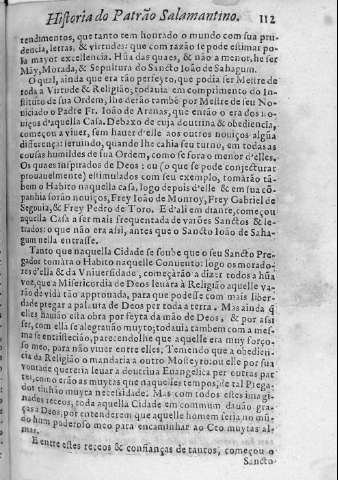 Historia do Patrão Salamantino. 112
rendimentos, que tanto tem honrado o mundo com sua pru-
dencia, letras, & virtudes: que com razão se pode estimar po-
la mayor excellencia. Hũa das quaes, & não a menor, he ser
Mãy, Morada, & Sepultura do Sancto Ioão de Sahagum.
O qual, ainda que era tão perfeyto, que podia ser Mestre de
toda a Virtude & Religião; todauia em comprimento do In-
stituto de sua Ordem, lhe derão també por Mestre de seu No-
uiciado o Padre Fr. Ioão de Arenas, que então o era dos no-
uiços d'aquella Casa. Debaxo de cuja doutrina & obediencia,
começou a viuer, sem hauer d'elle aos outros nouiços algũa
differença: seruindo, quando lhe cahia seu turno, em todas as
cousas humildes de sua Ordem, como se fora o menor d'elles.
Os quaes inspirados de Deos: ou (o que se pode conjecturar
prouauelmente) estimulados com seu exemplo, tomarão tã-
bem o Habito naquella casa, logo depois d'elle & em sua cõ-
panhia forão nouiços, Frey Ioão de Monroy, Frey Gabriel de
Segouia, & Frey Pedro de Toro. E d'ali em diante, começou
aquella Casa a ser mais frequentada de varões Sanctos & le-
trados: o que não era assi, antes que o Sancto Ioão de Saha-
gum nella entrasse.
Tanto que naquella Cidade se soube que o seu Sancto Pre-
gador tomàra o Habito naquelle Conuento: logo os morado-
res d'ella & da Vniuersidade, começarão a dizer todos a hũa
voz, que a Misericordia de Deos leuàra à Religião aquelle va-
rão de vida tão approuada, para que podesse com mais liber-
dade pregar a palaura de Deos por toda a terra. Mas ainda q̃
elles hauião esta obra por feyta da mão de Deos, & por assi
ser, com ella se alegrauão muyto; todauia tambem com a mes-
ma se entristecião, parecendolhe que aquelle era muy forço-
so meo, para não viuer entre elles. Temendo que a obedien-
cia da Religião o mandaria a outro Mosteyro: ou elle por sua
vontade quereria leuar a doutrina Euangelica per outras par-
tes, como erão as muytas que naquelles tempos, de tal Prega-
dor tinhão muyta necessidade. Mas com todos estes imagi-
nados receos, toda aquella Cidade em commum dauão gra-
ças a Deos, por entenderem que aquelle homem seria no mũ-
do hum poderoso meo para encaminhar ao Ceo muytas al-
mas.
E entre estes receos & confianças de tantos, começou o
Sancto